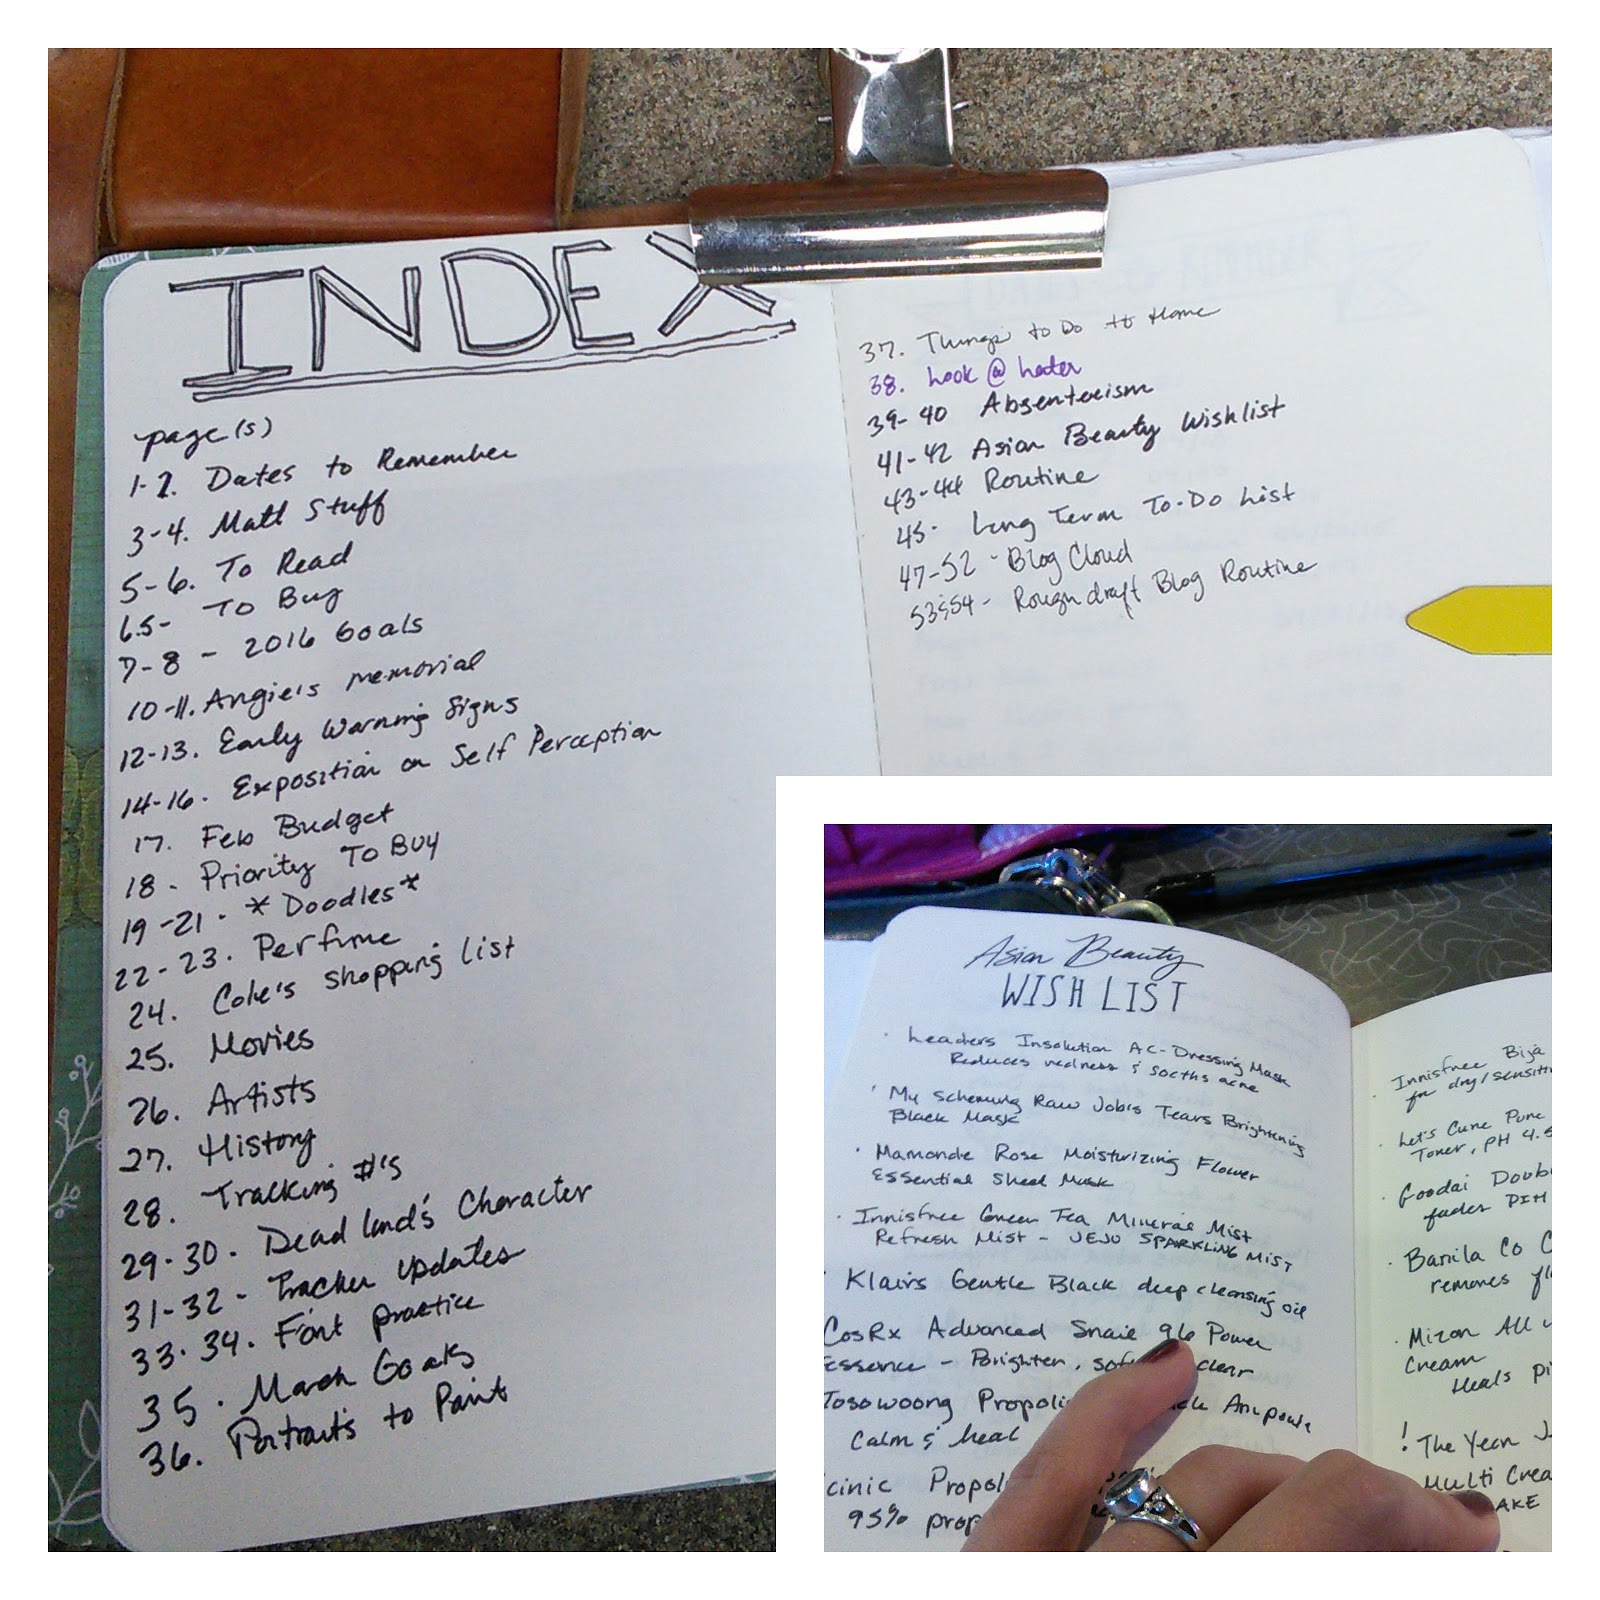 INDEX
page(s)
1-2. Dates to Remember
3-4. Matt Stuff
5-6. To Read
6.5- To Buy
7-8 - 2016 Goals
10-11. Angie's memorial
12-13. Early Warning Signs
14-16. Exposition on Self Perception
17. Feb Budget
18. Priority To Buy
19-21. *Doodles*
22-23. Perfume
24. Cole's shopping list
25. Movies
26. Artists
27. History
28. Tracking #'s
29-30. Deadland's Character
31-32 - Tracker Updates
33-34. Font practice
35. March Goals
36. Portraits to Paint
37. Things to Do Home
38. Look @ Later
39-40 Absenteeism
41-42 Asian Beauty Wishlist
43-44 Routine
45- Long Term To-Do List
47-52 - Blog Cloud
53&54 - Rough draft Blog Routine
Asian Beauty
WISH LIST
· Leaders Insolution AC-Dressing Mask
Reduces redness & sooths acne
· My Scheming Raw Job's Tears Brightening
Black Mask
· Mamonde Rose Moisturizing Flower
Essential Sheet Mask
· Innisfree Green Tea Mineral Mist
Refresh Mist - JEJU SPARKLING MIST
· Klairs Gentle Black deep cleansing oil
CosRx Advanced Snail 96 Power
Essence - Brighten, clear
Tosowoong Ampoule
Calm & heal
95%
· Innisfree Bija
for dry/
· Let's Cure
Toner, pH 4.5
· Goodai
fades PIH
· Banila Co C
removes
· Mizon All
Cream
Heals
! The Yeon
Multi